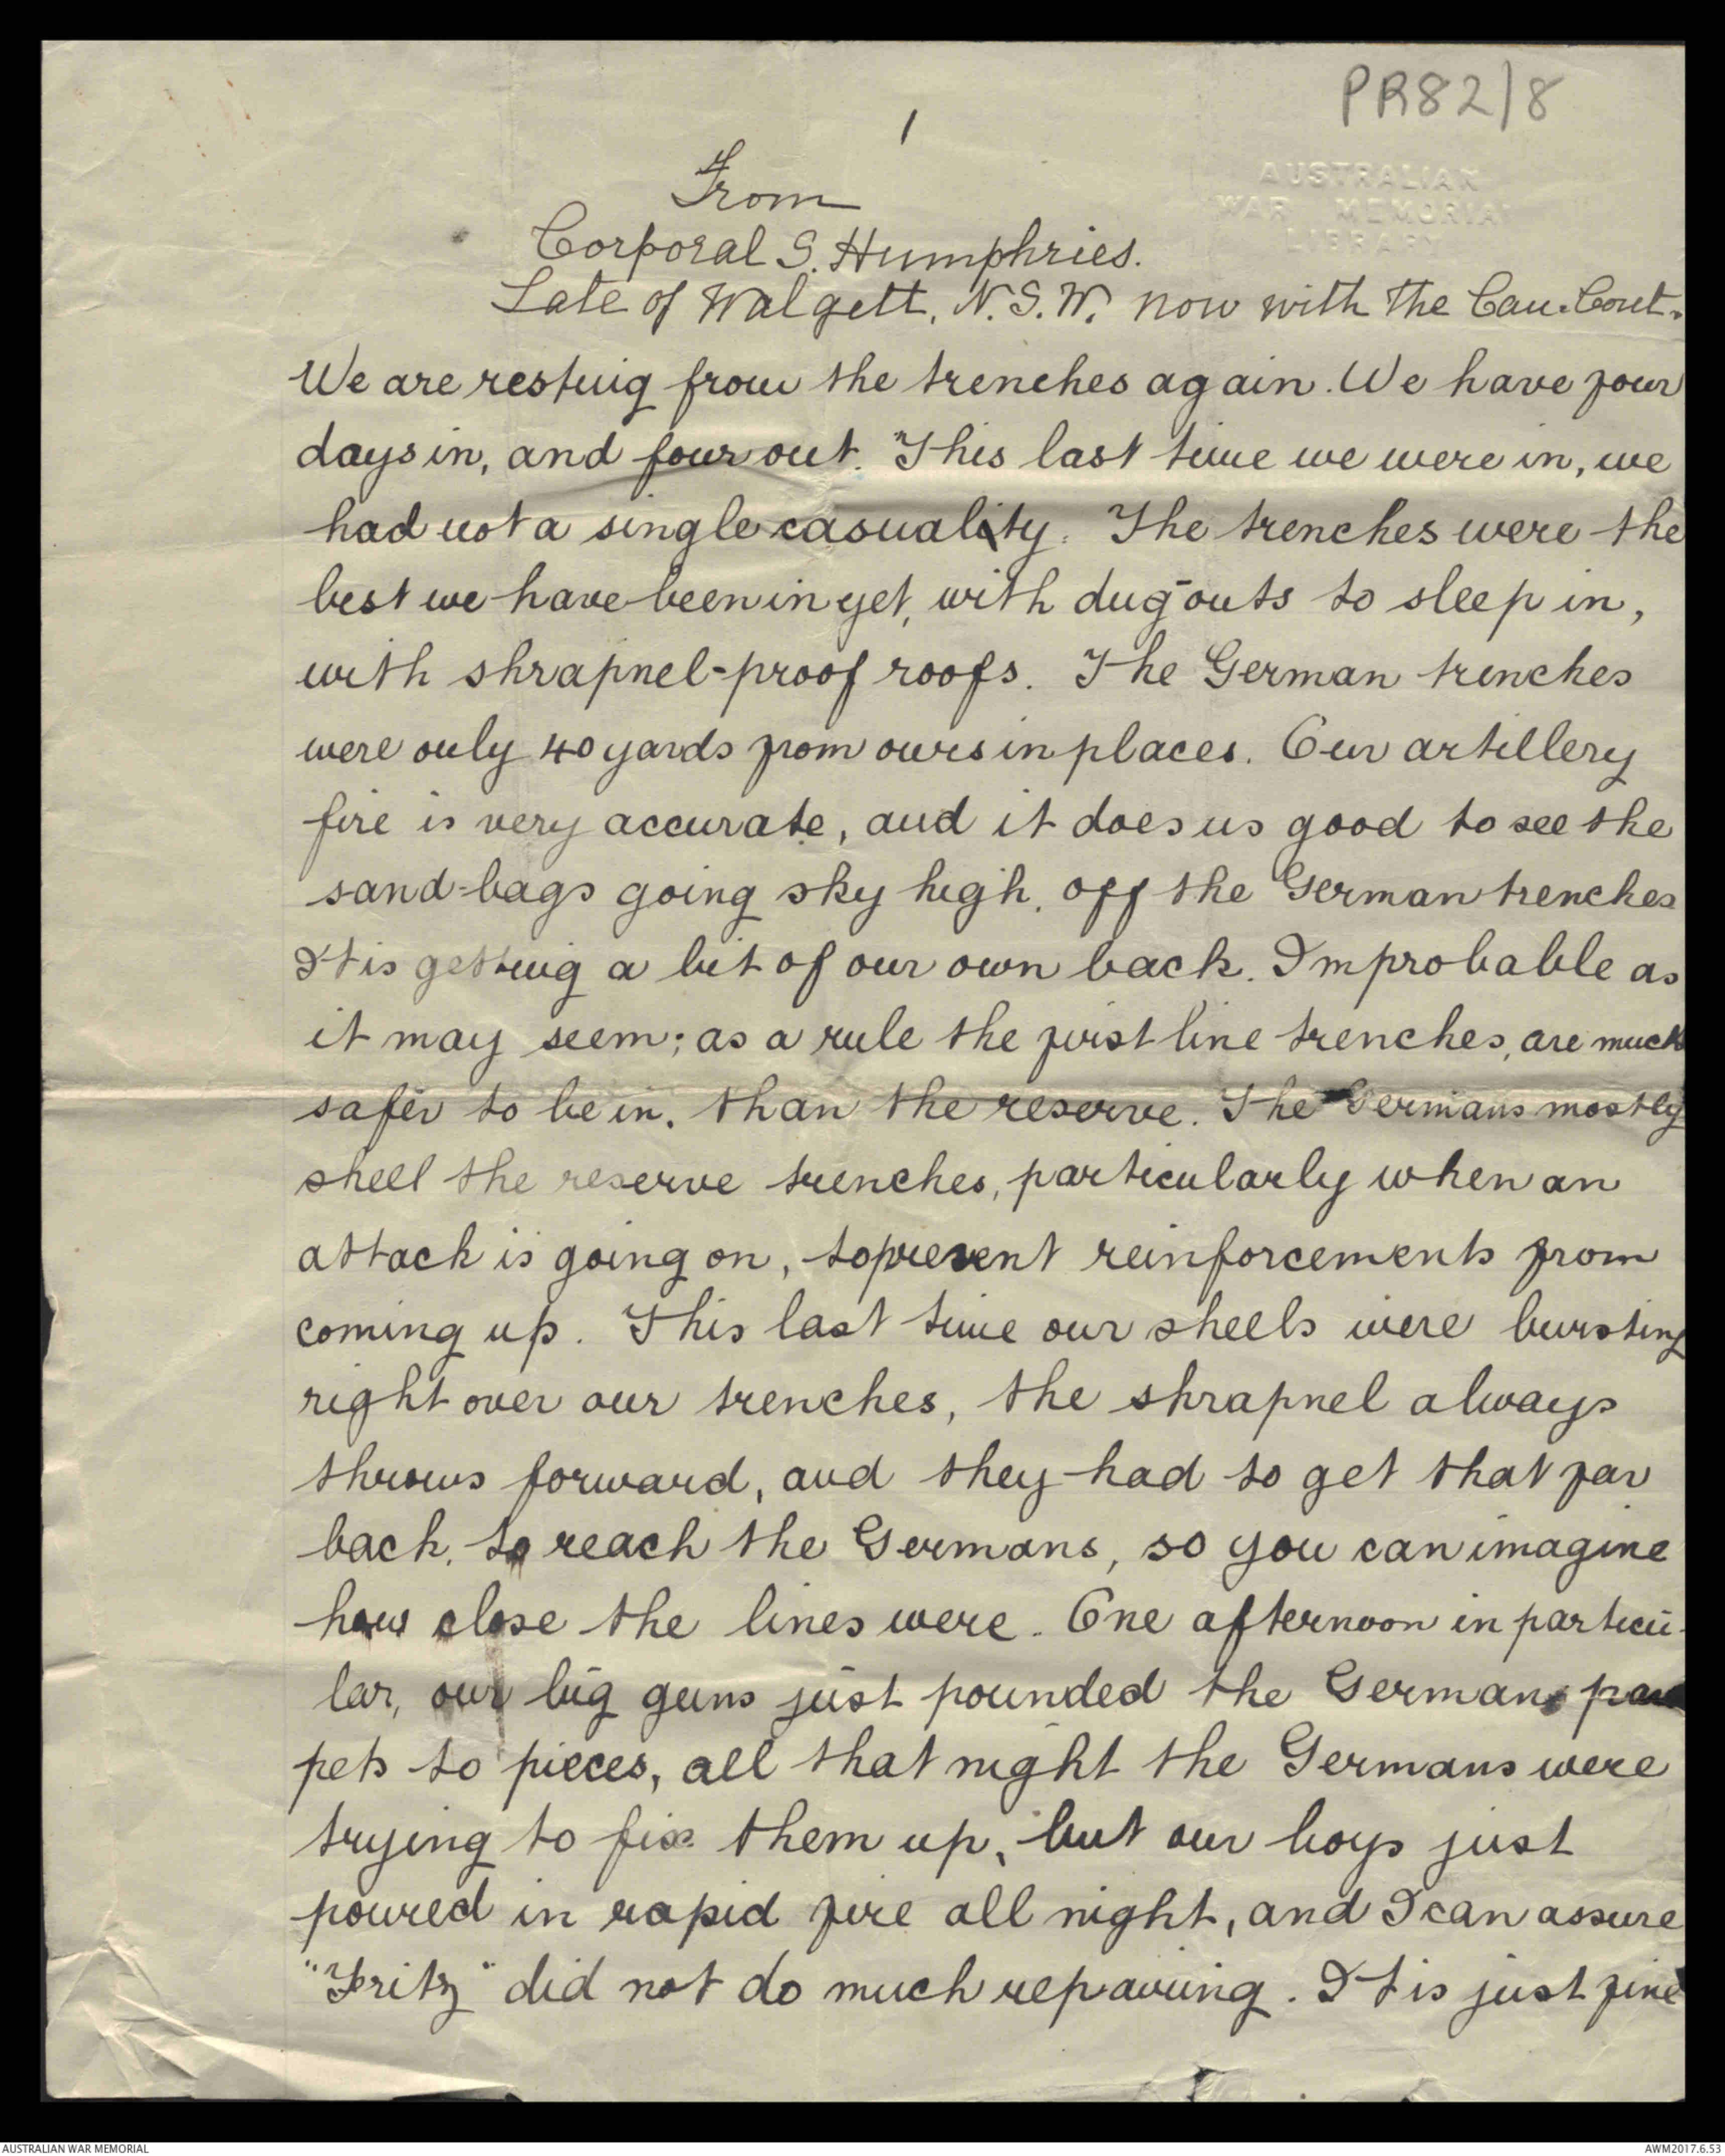 PR82/8
1
AUSTRALIAN
WAR MEMORIAL
LIBRARY
From
Corporal S. Humphries.
Late of Walgett, N.S.W. now with the Can. Cont.
We are resting from the trenches again. We have four
days in, and four out. This last time we were in, we
had not a single casuality. The trenches were the
best we have been in yet, with dug-outs to sleep in,
with shrapnel-proof roofs. The German trenches
were only 40 yards from ours in places. Our artillery
fire is very accurate, and it does us good to see the
sand-bags going sky high, off the German trenches
It is getting a bit of our own back. Improbable as
it may seem; as a rule the first line trenches, are much
safer to be in, than the reserve. The Germans mostly
shell the reserve trenches, particularly when an
attack is going on, to prevent reinforcements from
coming up. This last time our shells were bursting
right over our trenches, the shrapnel always
throws forward, and they had to get that far
back, to reach the Germans, so you can imagine
how close the lines were. One afternoon in particu-
lar, our big guns just pounded the German para
pets to pieces, all that night the Germans were
trying to fix them up, but our boys just
poured in rapid fire all night, and I can assure
"Fritz" did not do much repairing. It is just fine
AUSTRALIAN WAR MEMORIAL
AWM2017.6.53